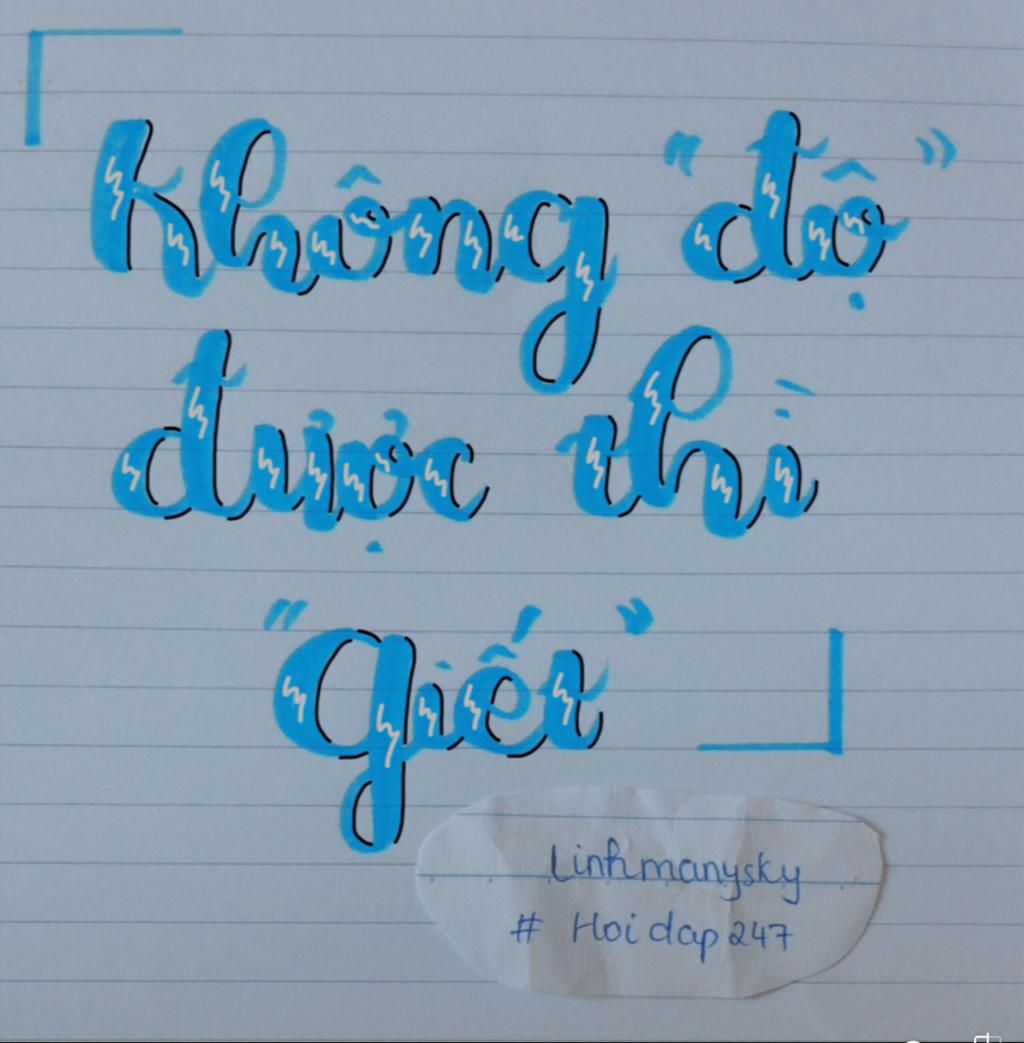 Không “độ”
được thì
“giết”
Linhmanysky
# Hoidap247